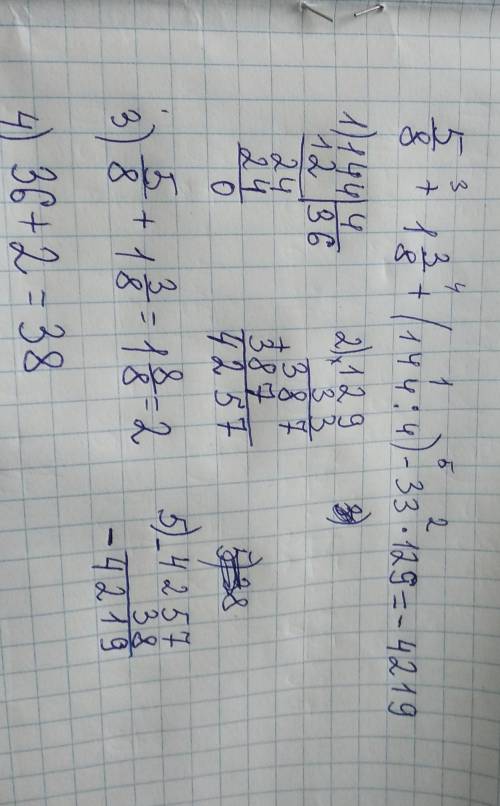 5/8 + 1 3/8 + (144:4) - 33 · 129 = - 4219
3 4 1 5 2
1) 144 | 4
12 | 36
24
24
0
2) × 129
33
+ 387
387
4257
3) 5/8 + 1 3/8 = 1 8/8 = 2
4) 36 + 2 = 38
5) - 4257
38
- 4219